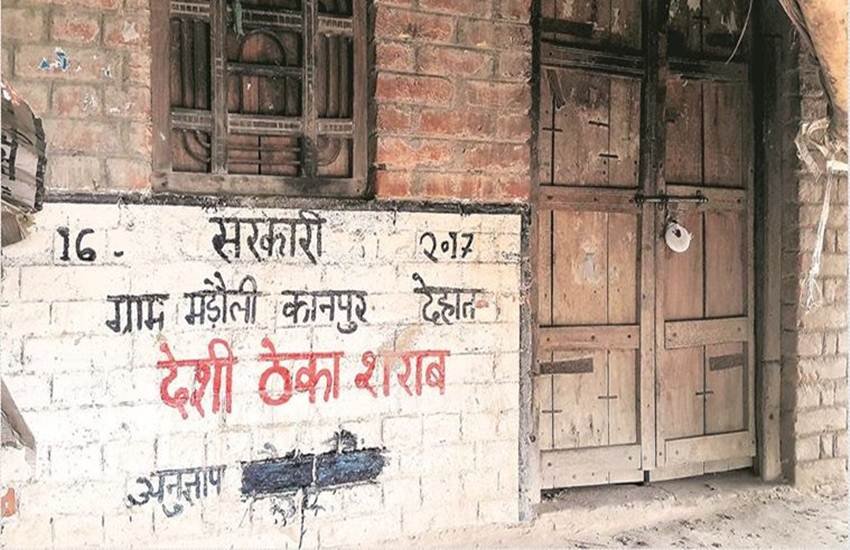 16 - सरकारी 2017
ग्राम मड़ौली कानपुर देहात
देशी ठेका शराब
अनुज्ञाप